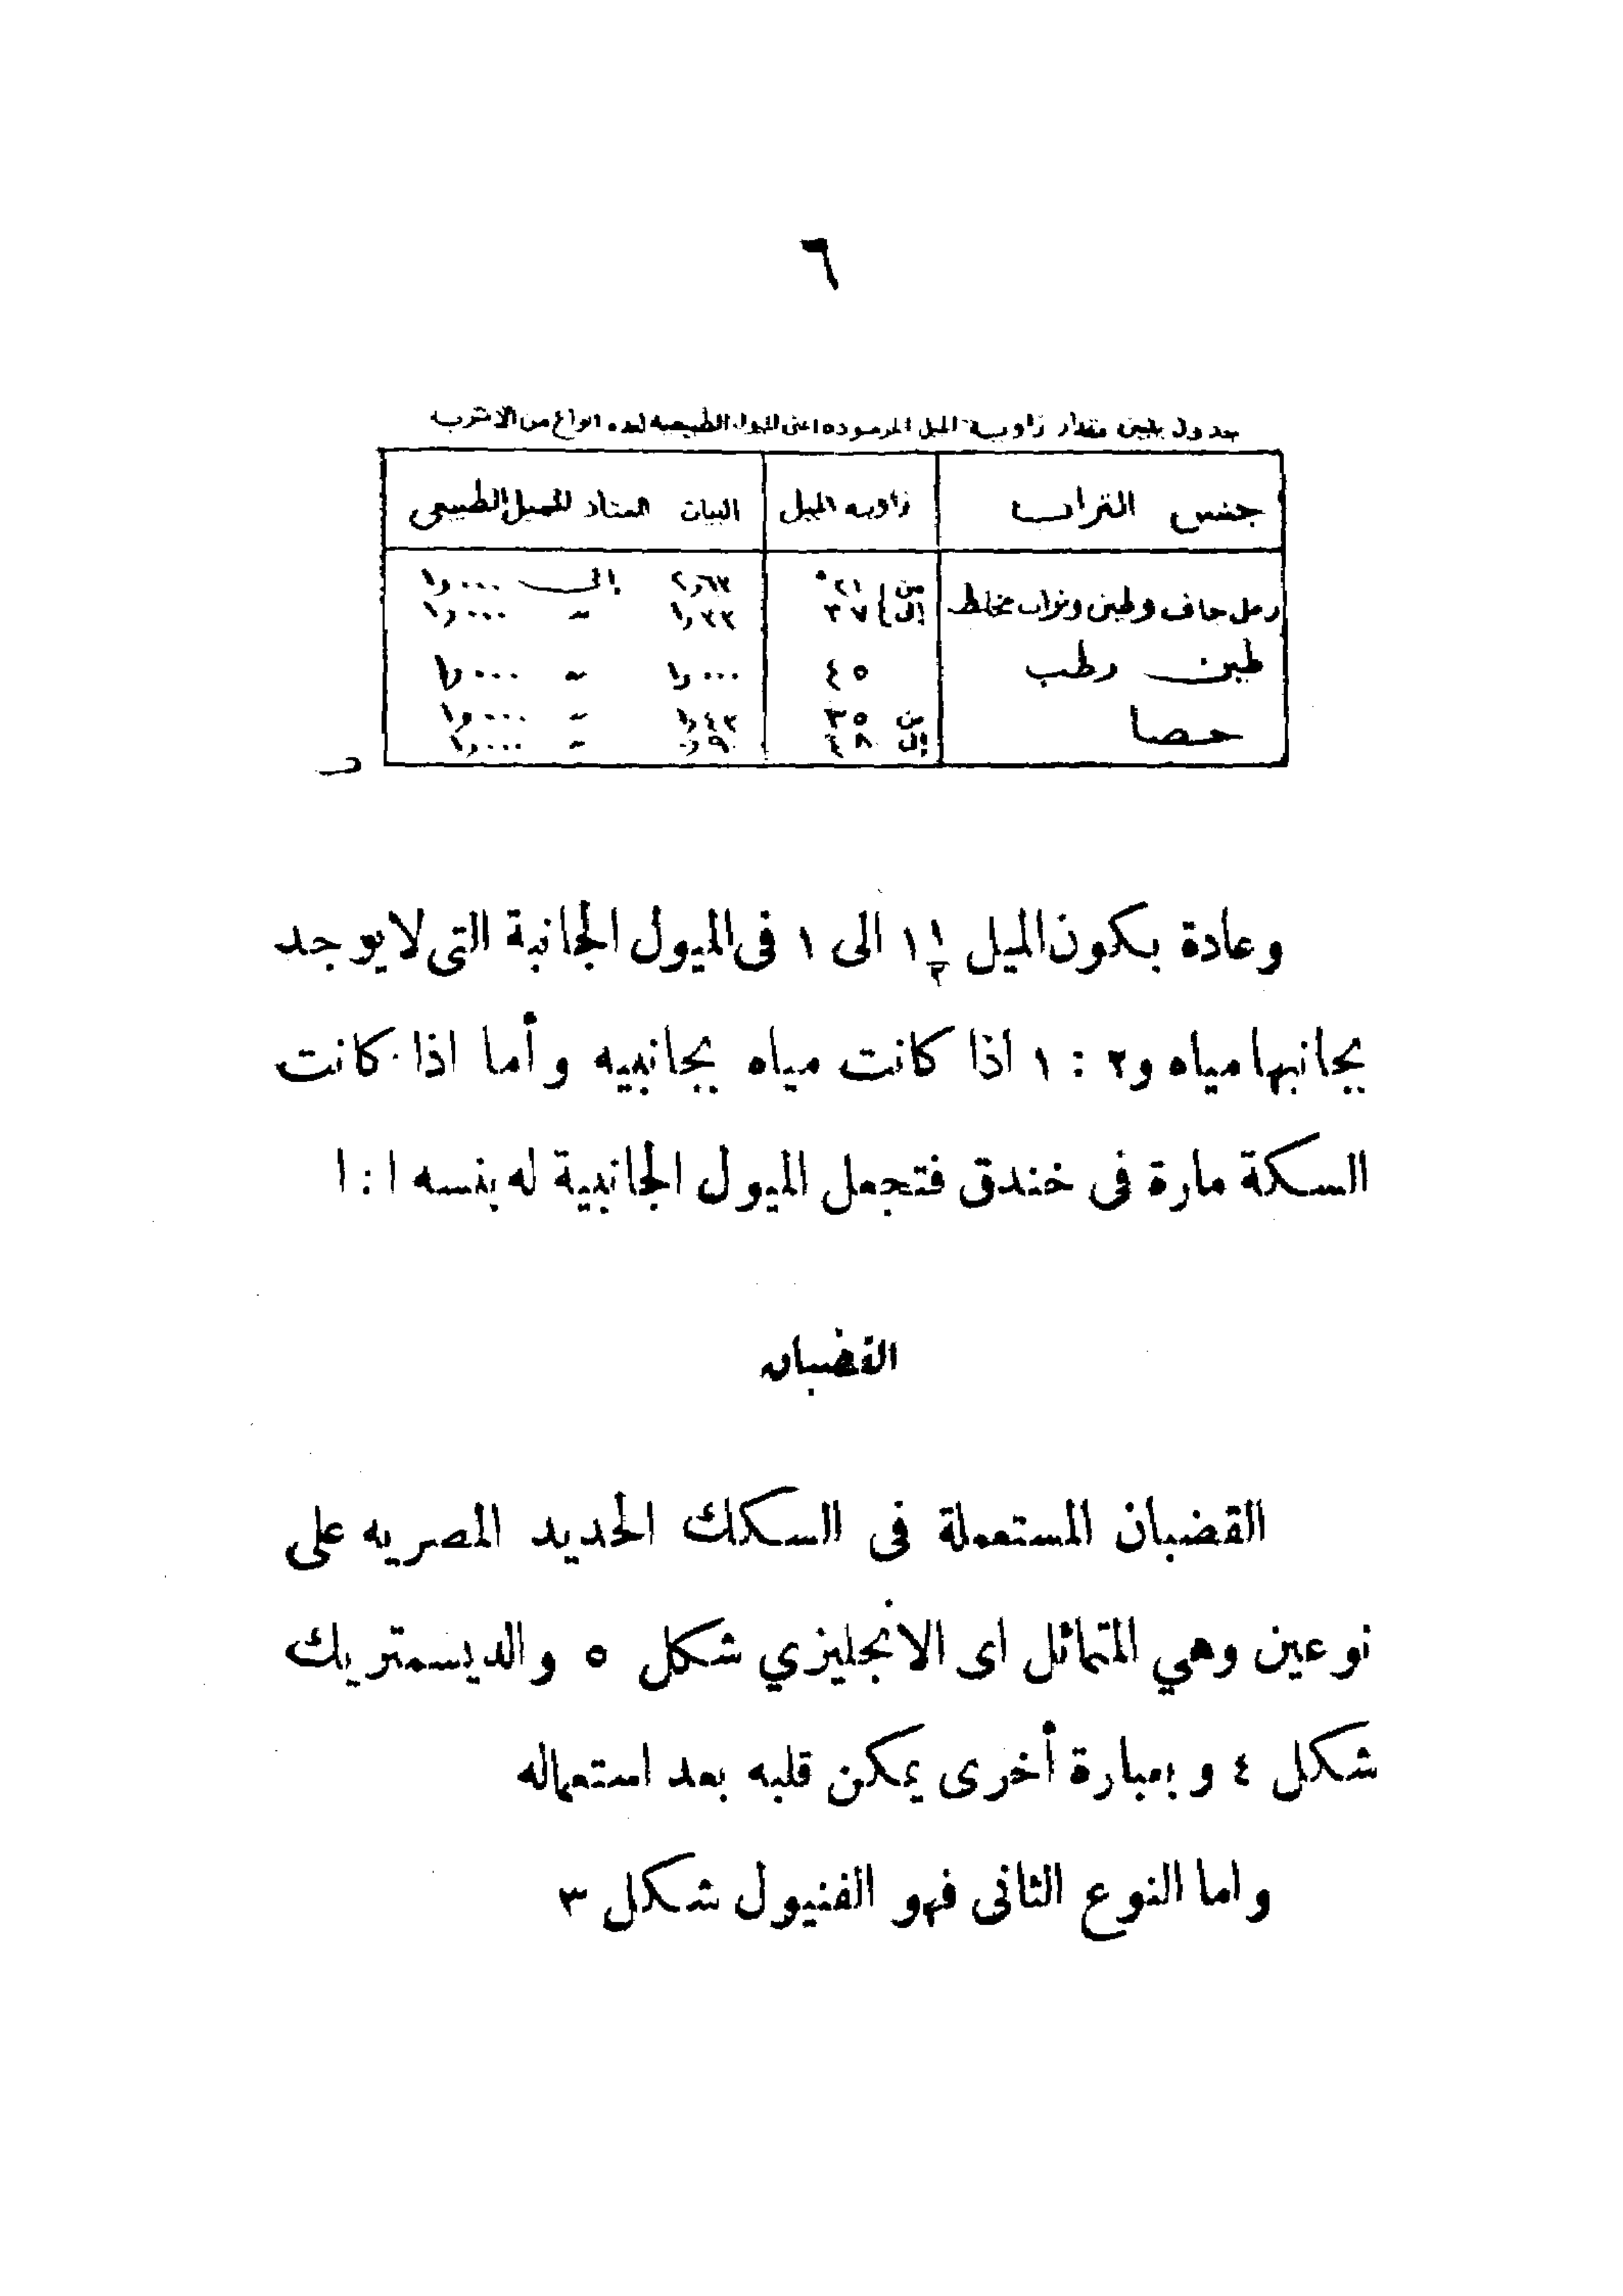 ٦
جدول يبين مقدار زاوية الميل المرصوده اعنى الميول الطبيعية لعده انواع من الاترب
جنس التراب زاويه الميل البيات المعتاد للميل الطبيعى
رمل جاف وطين وتراب مختلط من ٢١° ٢٫٦٣ إلى ١٫٠٠٠
إلى ٣٧ ١٫٣٣ " ١٫٠٠٠
طين رطب ٤٥ ١٫٠٠٠ " ١٫٠٠٠
حصا من ٣٥ ١٫٤٣ " ١٫٠٠٠
إلى ٤٨ ٠٫٩٠ " ١٫٠٠٠
وعادة يكون الميل ١ ١/٢ الى ١ فى الميول الجانبة التى لا يوجد
بجانبها مياه و٢ : ١ اذا كانت مياه بجانبيه وأما اذا كانت
السكة مارة فى خندق فتجعل الميول الجانبية له بنسه ١ : ١
القضبان
القضبان المستعملة فى السكك الحديد المصريه على
نوعين وهي المتماثل اى الانجليزي شكل ٥ والديسمتريك
شكل ٤ وبعبارة أخرى يمكن قلبه بعد استعماله
واما النوع الثانى فهو الفنيول شكل ٣